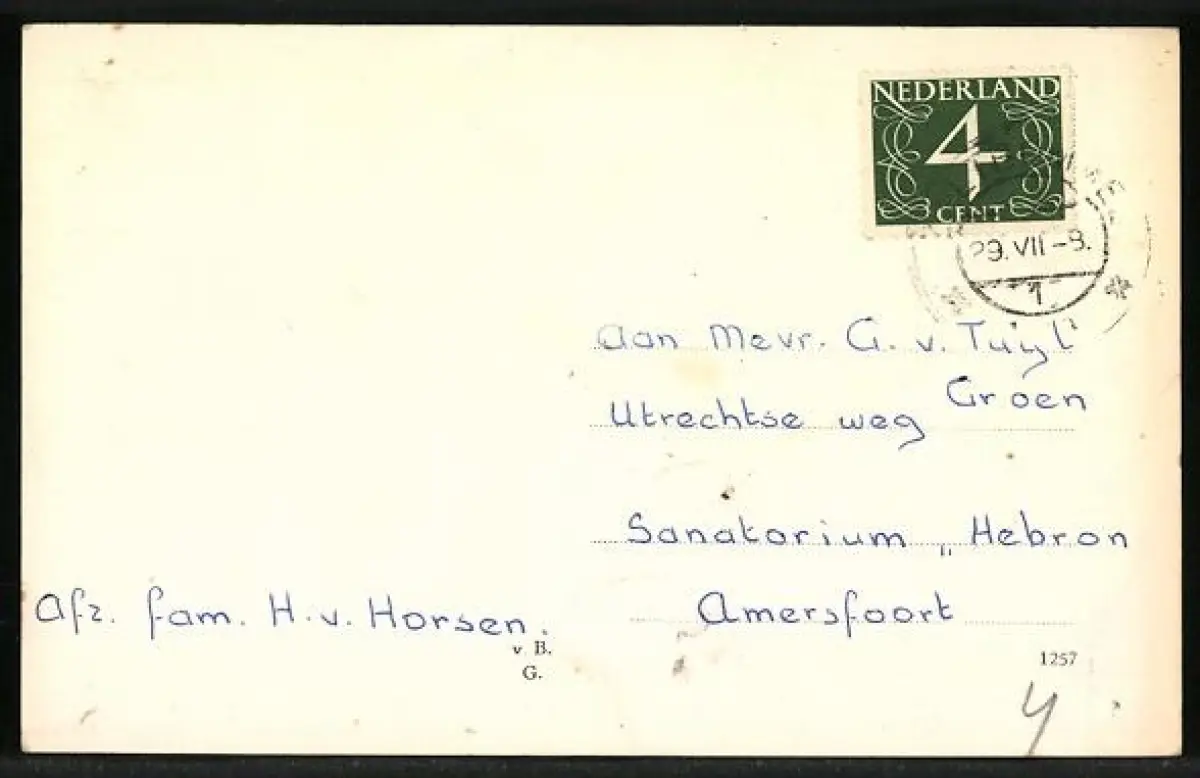 NEDERLAND
4
CENT
29.VII-9.
1
Aan Mevr. G. v. Tuijl
Groen
Utrechtse weg
Sanatorium „Hebron
Amersfoort
Afz. fam. H. v. Horsen.
v B.
G.
1257
4